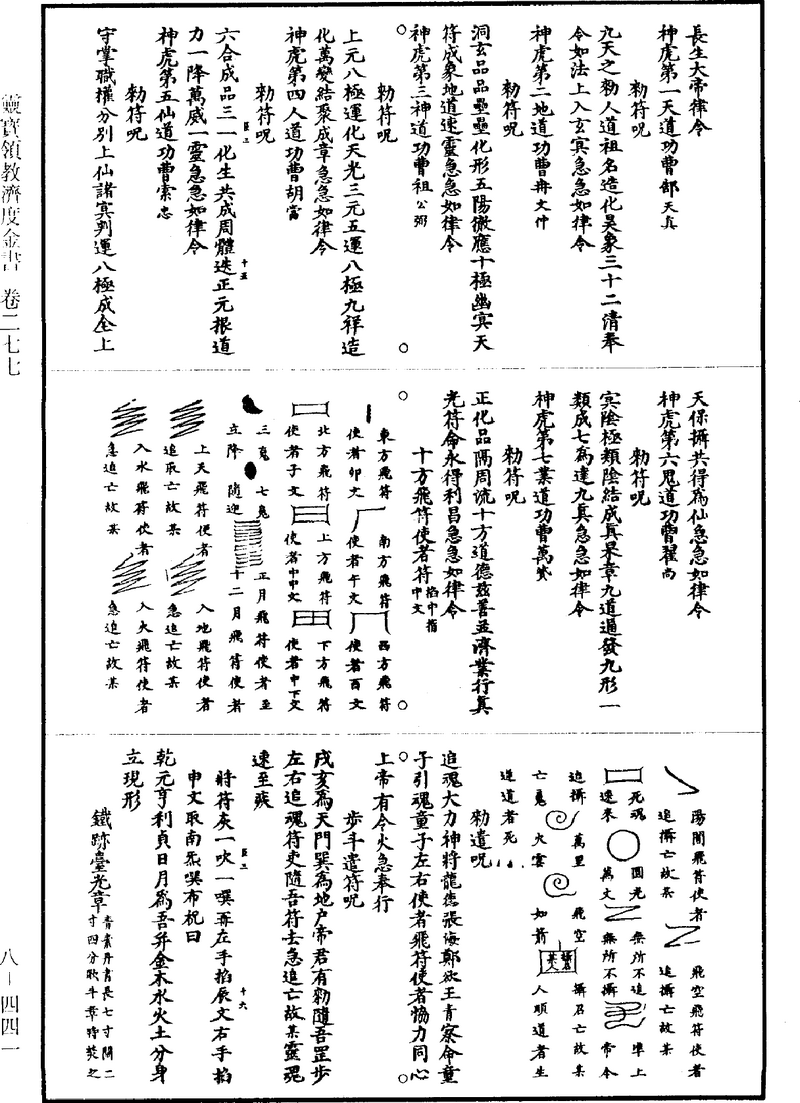 長生大帝律令
神虎第一天道功曹郝天真
勑符呪
九天之勑人道祖名造化昊象三十二清奉
令如法上入玄冥急急如律令
神虎第二地道功曹冉文仲
勑符呪
洞玄品品壘壘化形五陽徵應十極幽冥天
符成象地道速靈急急如律令
神虎第三神道功曹祖公弼
勑符呪
上元八極運化天光三元五運八極九祥造
化萬變結聚成章急急如律令
神虎第四人道功曹胡當
勑符呪
六合成品三一化生共成周體迭正元根道
力一降萬威一靈急急如律令
神虎第五仙道功曹索忠
勑符呪
守掌職權分別上仙諸冥判運八極成全上
天保攝共得為仙急急如律令
神虎第六鬼道功曹翟尚
勑符呪
冥陰極類陰結成真杲章九道通發九形一
類成七為達九真急急如律令
神虎第七業道功曹萬贇
勑符呪
正化品隔周流十方道德茲善並濟業行真
光符命永得利昌急急如律令
十方飛符使者符掐中指中文
東方飛符使者卯文
南方飛符使者午文
西方飛符使者酉文
北方飛符使者子文
上方飛符使者中中文
下方飛符使者中下文
三魂立降
七魄隨迎
正月飛符使者至十二月飛符使者
上天飛符使者追取亡故某
入地飛符使者急追亡故某
入水飛符使者急追亡故某
入火飛符使者急追亡故某
陽間飛符使者追攝亡故某
飛空飛符使者追攝亡故某
死魂速來
圓光萬丈
無所不追無所不攝
準上帝令
追攝亡魂
萬里火雲
飛空如箭
攝召亡故某人順道者生
逆道者死
勑遣呪
追魂大力神將龍德張侮鄭欲王青察命童
子引魂童子左右使者飛符使者協力同心
上帝有令火急奉行
步斗遣符呪
戌亥為天門巽為地户帝君有勑隨吾罡步
左右追魂符吏隨吾符去急追亡故某靈魂
速至疾
將符灰一吹一噀再左手掐辰文右手掐
申文取南炁噀布祝曰
乾元亨利貞日月為吾并金木水火土分身
立現形
鐵跡臺光章青素丹書長七寸闊二寸四分歌斗章時焚之
靈寶領教濟度金書 卷二七七
八－四四一